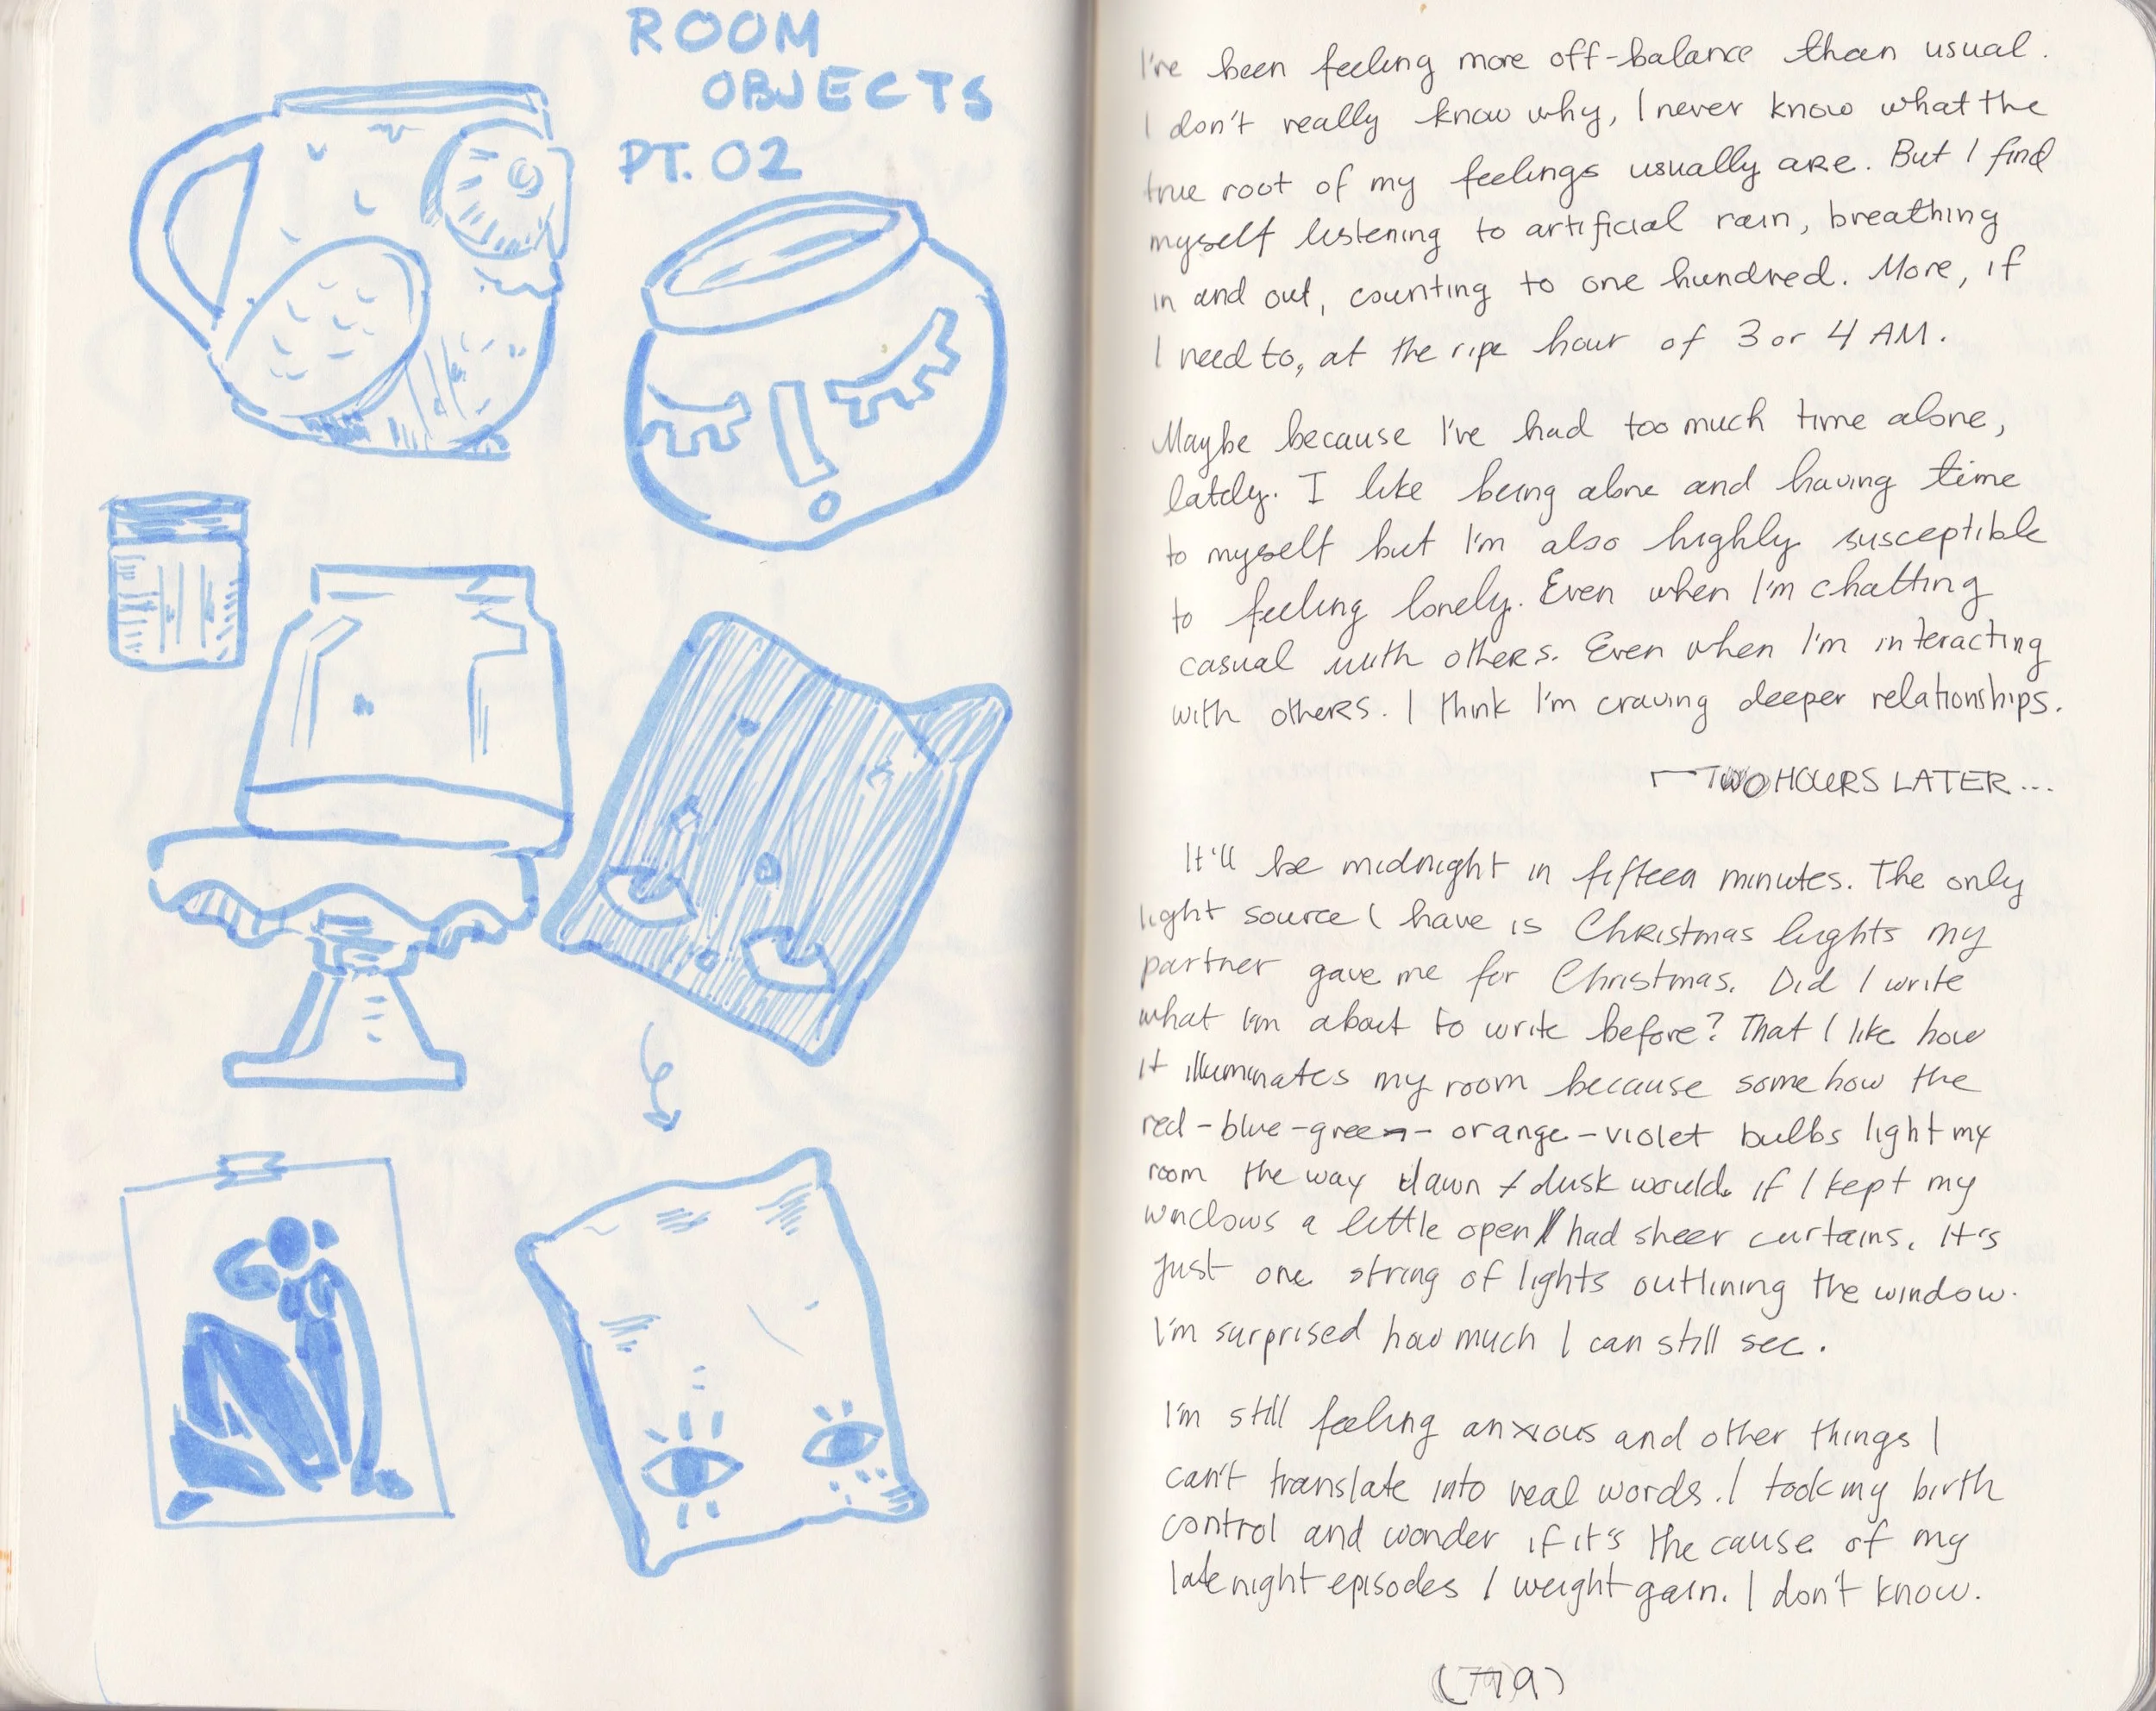 ROOM
OBJECTS
PT. 02
I've been feeling more off-balance than usual.
I don't really know why, I never know what the
true root of my feelings usually are. But I find
myself listening to artificial rain, breathing
in and out, counting to one hundred. More, if
I need to, at the ripe hour of 3 or 4 AM.
Maybe because I've had too much time alone,
lately. I like being alone and having time
to myself but I'm also highly susceptible
to feeling lonely. Even when I'm chatting
casual with others. Even when I'm interacting
with others. I think I'm craving deeper relationships.
TWO HOURS LATER...
It'll be midnight in fifteen minutes. The only
light source I have is Christmas lights my
partner gave me for Christmas. Did I write
what I'm about to write before? That I like how
it illuminates my room because somehow the
red-blue-green-orange-violet bulbs light my
room the way dawn + dusk would. if I kept my
windows a little open / had sheer curtains. It's
just one string of lights outlining the window.
I'm surprised how much I can still see.
I'm still feeling anxious and other things I
can't translate into real words. I took my birth
control and wonder if it's the cause of my
late night episodes / weight gain. I don't know.